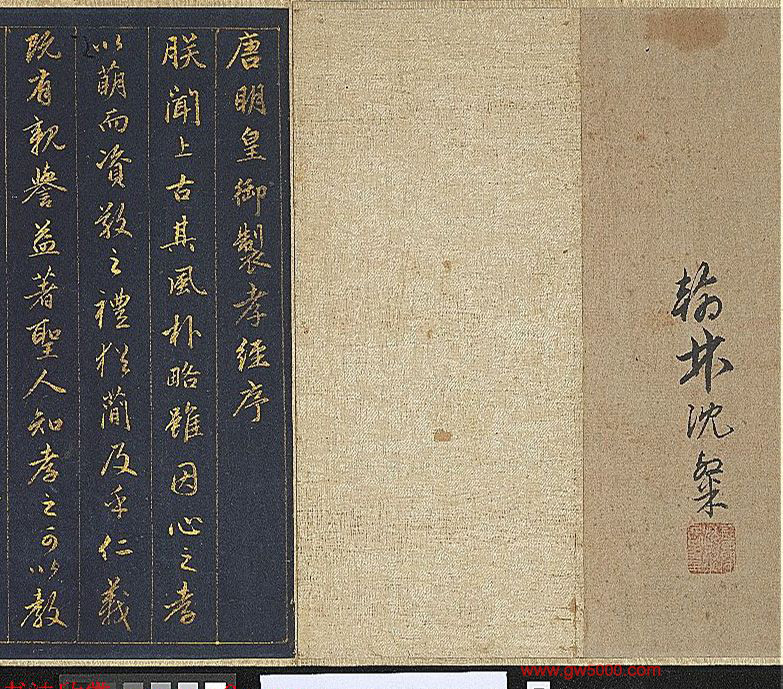 翰林沈粲
唐明皇御製孝經序
朕聞上古其風朴略雖因心之孝
以萌而資敬之禮猶簡及乎仁義
既有親譽益著聖人知孝之可以教
www.gw5000.com